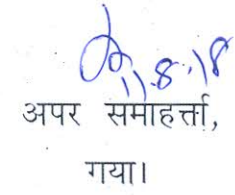 11.8.18
अपर समाहर्त्ता,
गया।